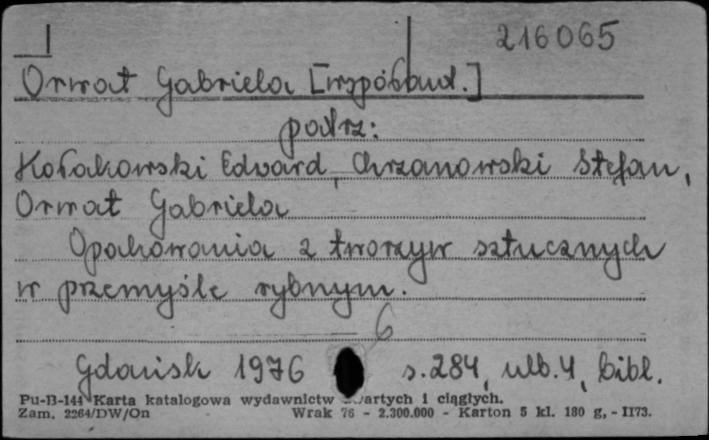 216065
Orwat Gabriela [współaut.]
patrz:
Kołakowski Edward, Chrzanowski Stefan,
Orwat Gabriela
Opakowania z tworzyw sztucznych
w przemyśle rybnym.
6
Gdańsk 1976 s.284, ulb.4, bibl.
Pu-B-144 Karta katalogowa wydawnictw i ciągłych.
Zam. 2264/DW/On Wrak 76 - 2.300.000 - Karton 5 kl. 180 g, - II73.